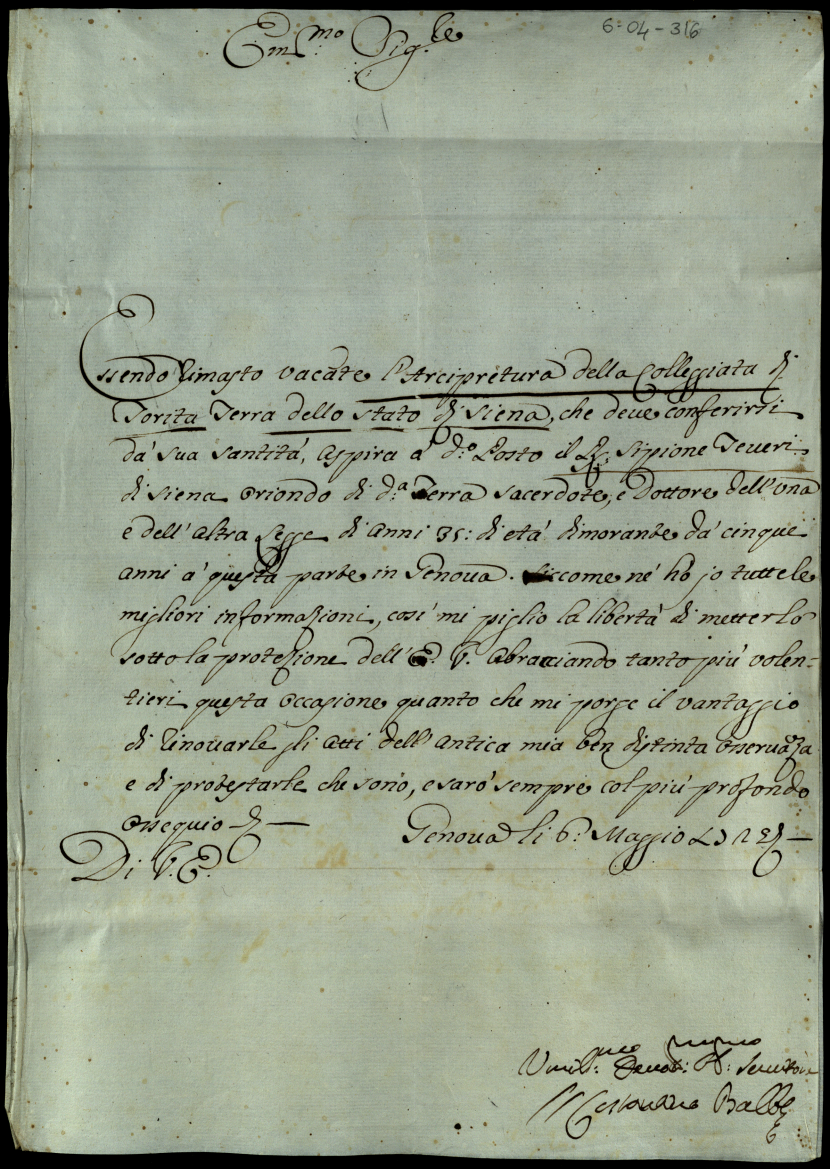 6-04-316
Em.mo Sig.le
Essendo rimasto vacãte l'Arcipretura della Collegiata di
Torita Terra dello stato di Siena, che deve conferirsi
da' sua santità, aspira a' d.o Posto il Sipione Teveri
di Siena oriondo di d.a Terra sacerdote, e Dottore dell'una
e dell'altra Legge di anni 35: di età dimorante da' cinque
anni a' questa parte in Genova. siccome ne' hò jo tutte le
migliori informazioni, così mi piglio la libertà di metterlo
sotto la protezione dell'E. V. abracciando tanto più volen=
tieri questa occasione quanto che mi porge il vantaggio
di rinovarle gli atti dell'antica mia ben distinta osservãza
e di protestarle che sono, e sarò sempre col più profondo
ossequio
Genova li 6: Maggio
Di V. E.
Umil.mo Devot: servitore
Balbi